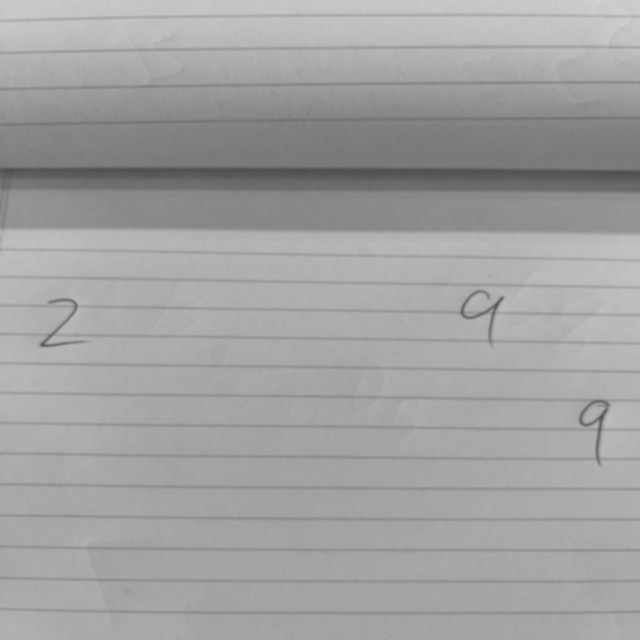 2 9
9